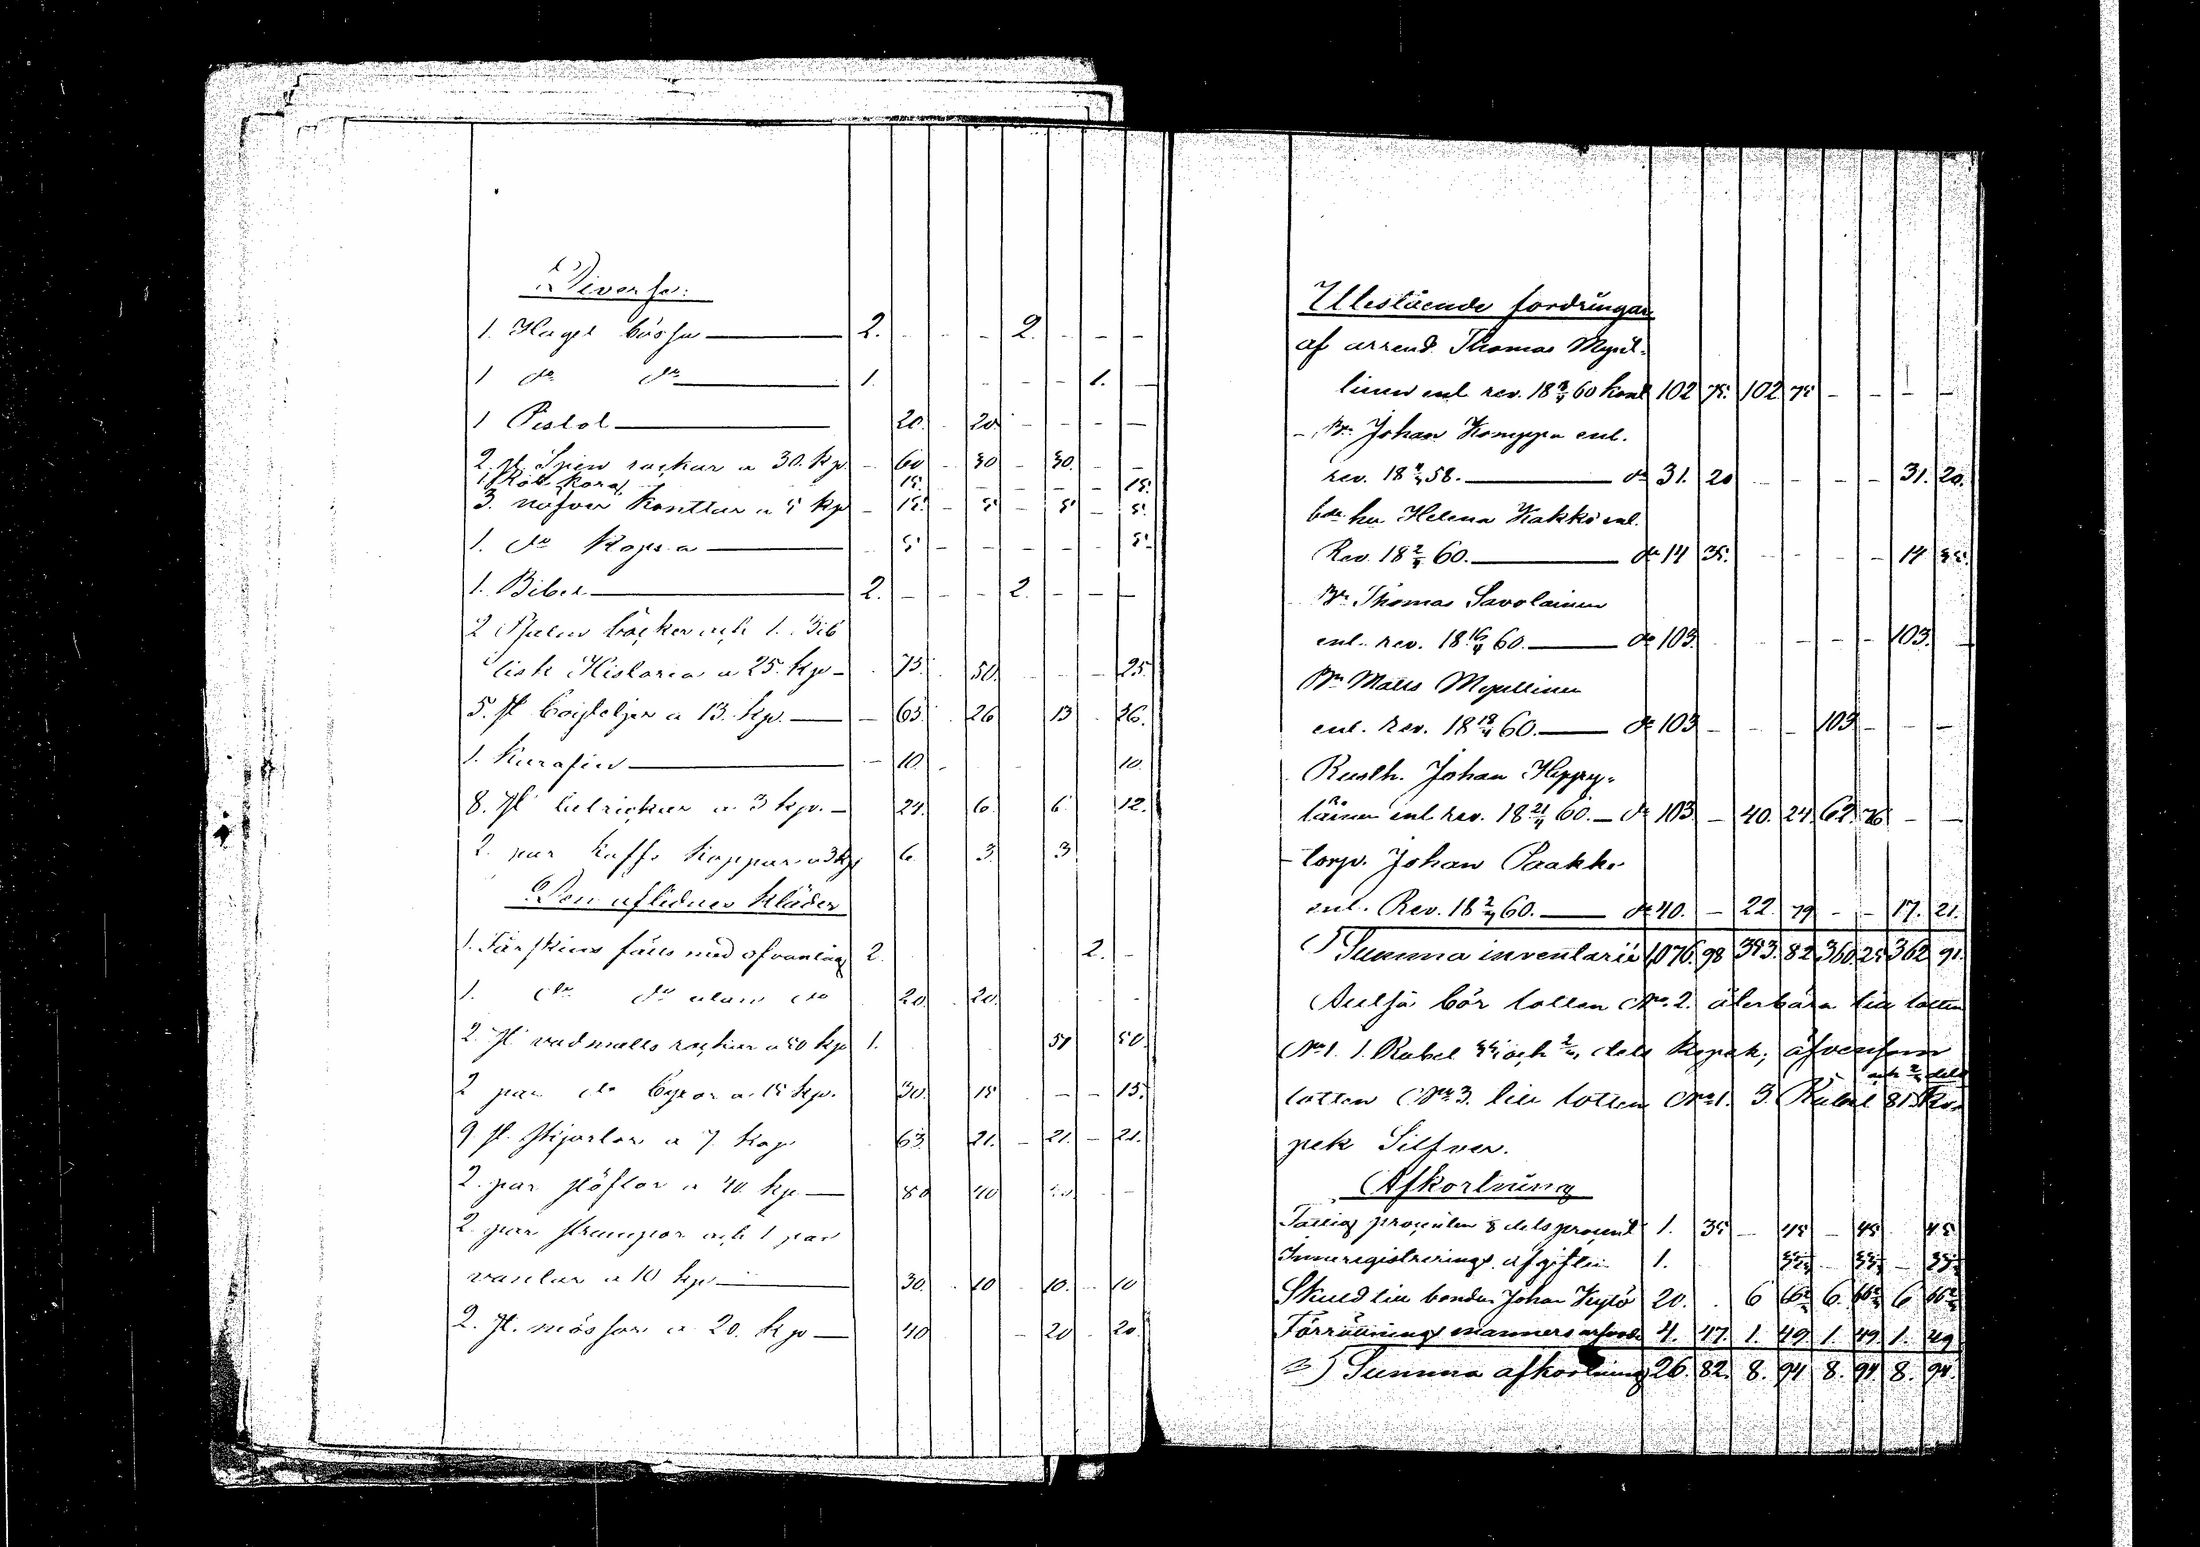 Diverse:
1. Hagel bössa 2. - - - 2. - - -
1 do do 1. - - - 1. -
1 Pistol 20. - 20. - - - -
2. st. Spinrockar a 30. kp. - 60 - 30 - 30. - -
1 Köt korg 15. - - - - 15.
3. näfver konttar a 5 kp - 15. - 5 - 5 - 5.
1. do Kopsa 5 - - - - - 5.
1. Bibel 2. - - - 2. - - -
2 Psalm böcker och 1. Bib
lisk Historia a 25. kp - 75. 50. - - - 25.
5. st Boujteljer a 13. kp. - 65. 26 13 26.
1. Karafin - 10. 10.
8. st talrickar a 3 kp. - 24. 6. 6. 12.
2. par kaffe koppar a 3 kp 6. 3. 3
Den aflidnes kläder
1. Fårskins fäll med ofvanlag 2. 2. -
1. do do utan do 20. 20. -
2. st vadmals rockar a 50 kp 1. 50 50.
2 par do byxor a 15 kp. 30. 15 - - 15.
9 st. skjortor a 7. kop 63. 21. - 21. - 21.
2. par stöflor a 40. kp 80 40 40. -
2. par strumpor och 1 par
vantar a 10 kp 30. 10 10. 10
2. st. mössor a 20. kp 40 - 20 20.
Utestående fordringar
af arrend. Thomas Myul-
linen enl. rev. 18 60 kont 102 75. 102 75 - - - -
Bn Johan Komppa enl.
rev. 18 58. do 31. 20 - - - - 31. 20.
bde hu Helena Kakko enl.
Rev. 18 2/4 60. do 14 35. - - - - 14 35.
Bn Thomas Savolainen
enl. rev. 18 16/4 60. do 103. - - - 103. -
Bn Matts Myullinen
enl. Rev. 18 18/4 60. do 103 - - - 103 - - -
Rusth. Johan Hyppy-
läinen enl rev. 18 21/4 60. - do 103. - 40. 24. 62. 76 - -
torp. Johan Paakko
enl. Rev. 18 2/4 60. do 40. - 22. 79 - - 17. 21.
Summa inventarii 1,076. 98 353. 82 360. 25 362 91.
Altså bör lotten No. 2. återbära till lotten
No 1. 1. Rubel 55 och 2/3 dels kopek; äfvensom
och 2/3 dels
lotten No 3. till lotten No 1. 3. Rubel 81. Ko-
pek Silfver.
Afkortning
Fattig procenten 8 dels procent 1. 35 - 45 - 45 45
Inneregistrerings afgiften 1. 33 1/3 - 33 1/3 - 33 1/3
Skuld till bonden Johan Kylö 20. 6 66 2/3 6. 66 2/3 6 66 2/3
Förrättnings manners arfvode 4. 47. 1. 49. 1. 49. 1. 49
Summa afkortning 26. 82. 8. 94 8. 94. 8. 94.